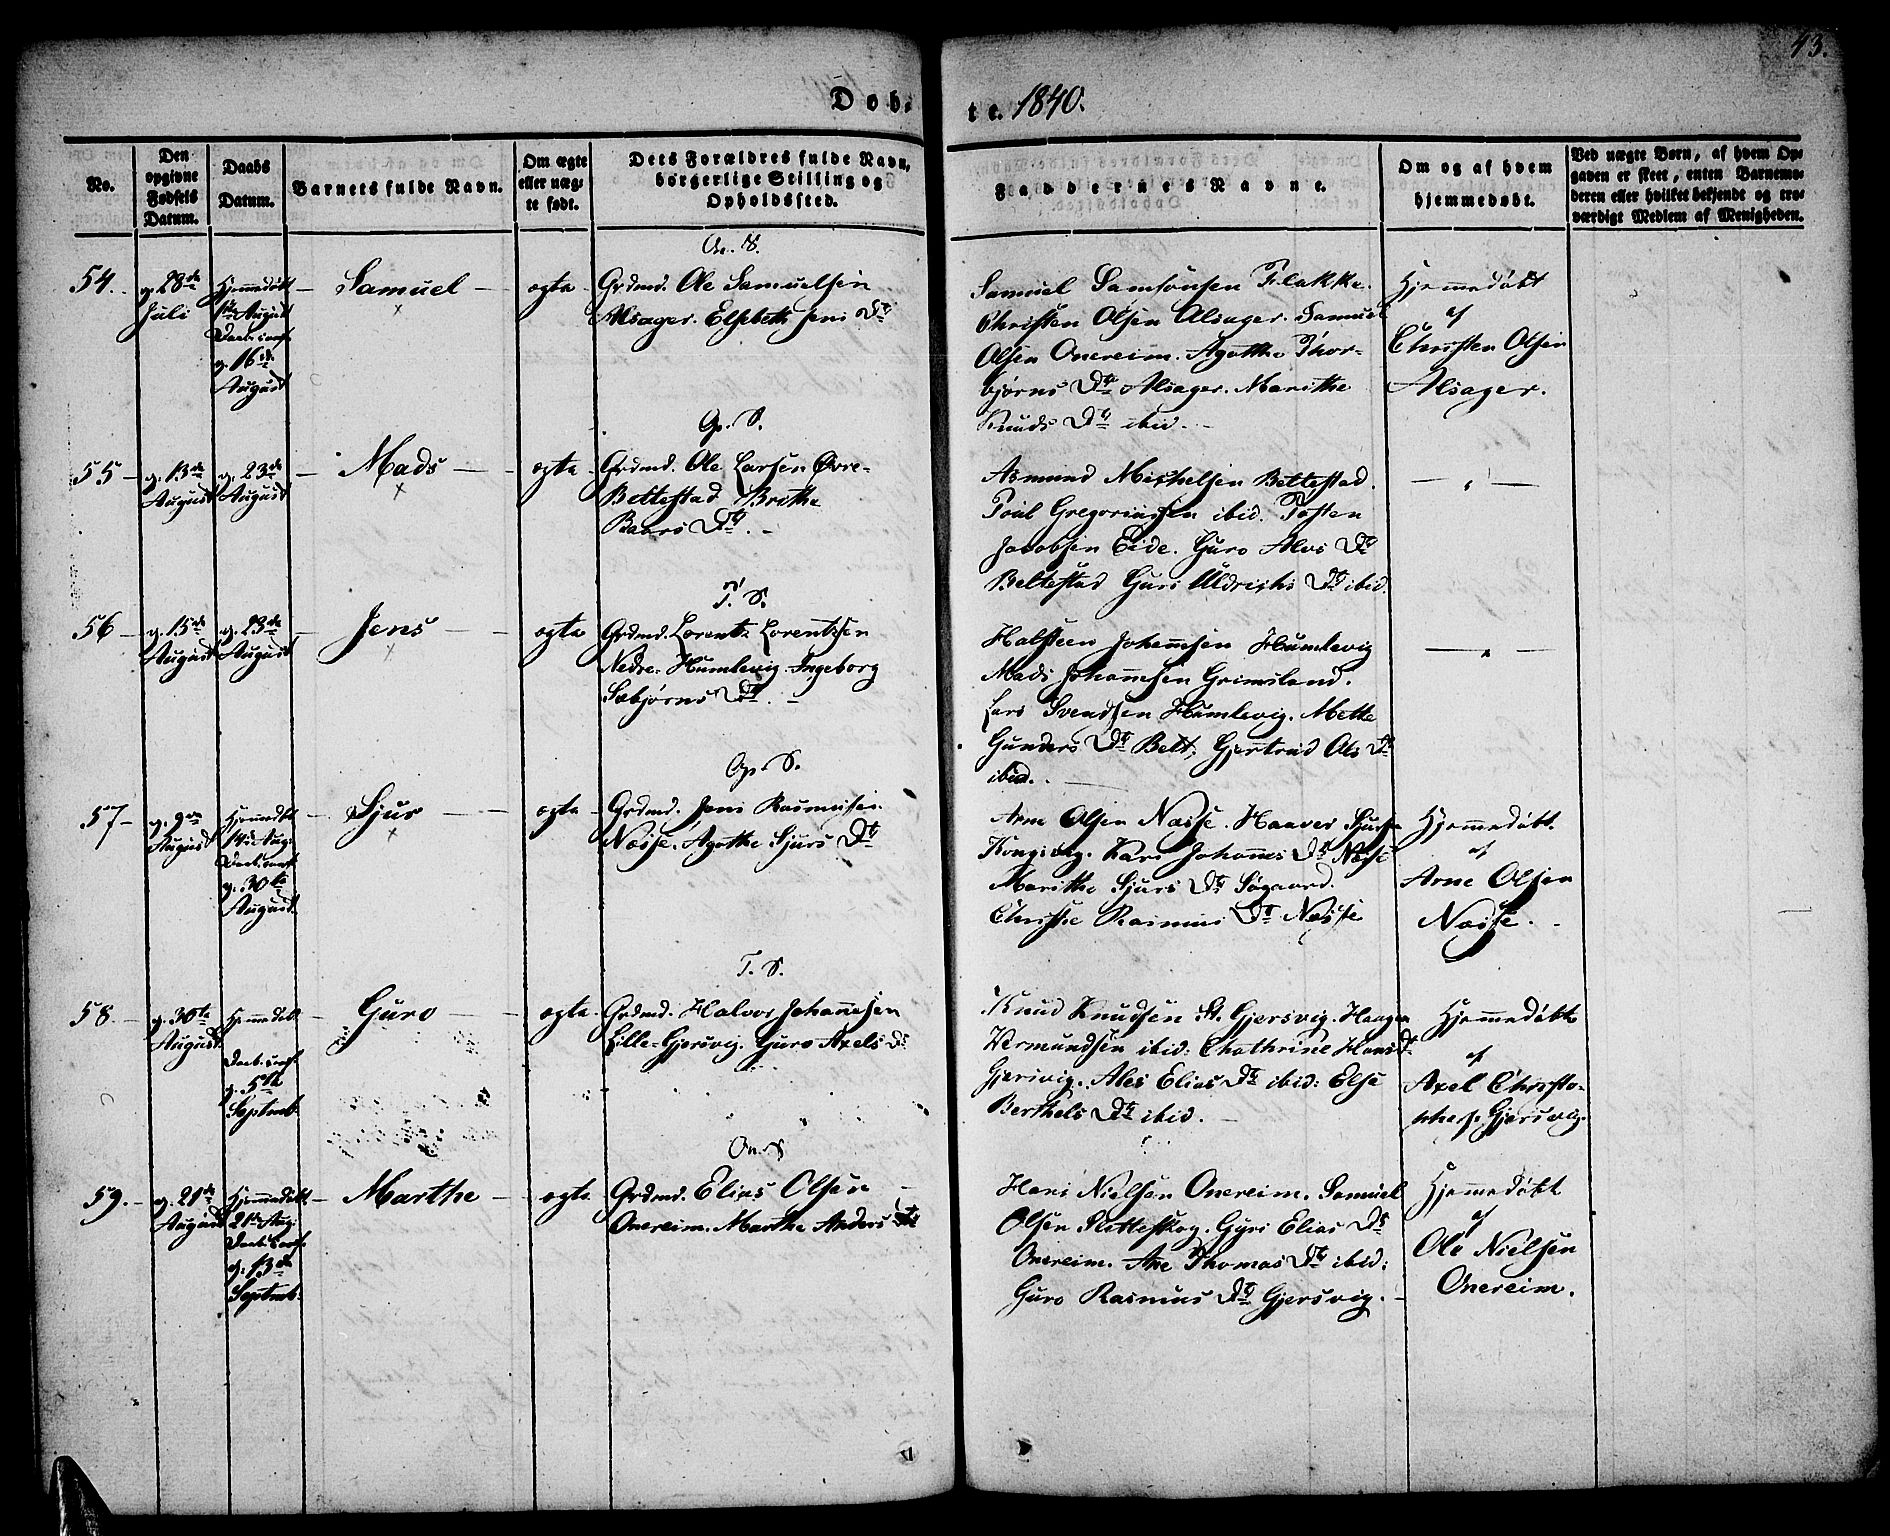 43.
Døb-
te. 1840.
No.
Den
opgivne
Fødsels
Datum.
Daabs
Datum.
Barnets fulde Navn.
Om ægte
eller uæg-
te født.
Dets Forældres fulde Navn,
borgerlige Stilling og
Opholdssted.
Faddernes Navne.
Om og af hvem
hjemmedøbt.
Ved uægte Børn, af hvem Op-
gaven er skeet, enten Barnemo-
deren eller hvilket bekjendt og tro-
værdigt Medlem af Menigheden.
On. S.
54.
g. 28de
Juli
Hjemmedøbt
August
g. 16de
August
Samuel
ægte
Grdmd. Ole Samuelsen
Alsager. Elsebeth Jens Dtr
Samuel Samsonsen Flakke.
Christen Olsen Alsager. Samuel
Olsen Onereim. Agathe Thor-
bjørns Dtr Alsager. Marithe
Knuds Dtr ibid.
Hjemmedøbt
af
Christen Olsen
Alsager.
Op. S.
55
g. 13de
August
g. 23de
August
Mads
ægte
Grdmd. Ole Larsen Øvre-
Beltestad Brithe
Baars Dtr.
Asmund Michelsen Beltestad.
Poul Gregoriussen ibid. Tosten
Jacobsen Eide. Guro Alvs Dtr
Beltestad Guri Uldrichs Dtr ibid.
T. S.
56
g. 15de
August
g. 23de
August
Jens
ægte
Grdmd. Lorentz Lorentzsen
Nedre-Humlevig. Ingeborg
Sæbjørns Dtr.
Halsteen Johannesen Humlevig
Mads Johannesen Grimsland.
Lars Svendsen Humlevig. Mette
Gunders Dtr Belt, Gjertrud Ols Dtr
ibid.
Op. S.
57
g. 9de
August
Hjemmedøbt
14de Aug.
g. 30te
August.
Sjur
ægte
Grdmd. Jens Rasmusen
Næsse. Agathe Sjurs Dtr
Arne Olsen Næsse. Haaver Sjursen
Kongsvig. Kari Johannes Dtr Næsse
Marithe Sjurs Dtr Søgaard.
Christie Rasmus Dtr Næsse
Hjemmedøbt
af
Arne Olsen
Næsse.
T. S.
58
g. 30te
August
Hjemmedøbt
g. 5te
Septemb.
Guro
ægte
Grdmd. Halvor Johannesen
Lille-Gjersvig. Guro Axels Dtr
Knud Knudsen St. Gjersvig. Haagen
Vermundsen ibid: Chathrine Hans Dtr
Gjersvig. Ales Elias Dtr ibid: Else
Berthels Dtr ibid.
Hjemmedøbt
af
Axel Christo-
phers. Gjersvig.
On. S
59.
g. 21de
August
Hjemmedøbt
21de Aug.
g. 13de
Septemb:
Marthe
ægte
Grdmd. Elias Olsen
Onereim. Marthe Anders Dtr
Hans Nielsen Onereim. Samuel
Olsen Flotteskog. Gyri Elias Dtr
Onereim. Ane Thomas Dtr ibid:
Guro Rasmus Dtr Gjersvig.
Hjemmedøbt
af
Ole Nielsen
Onereim.